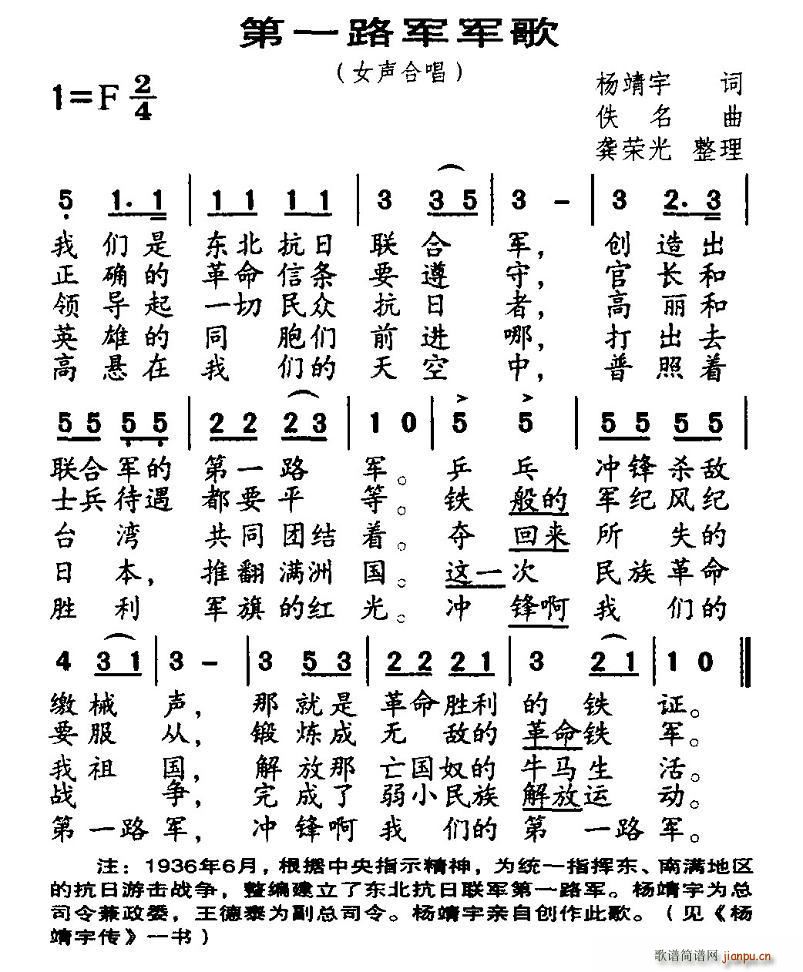 第一路军军歌
（女声合唱）
1=F 2/4
杨靖宇 词
佚名 曲
龚荣光 整理
5 1. 1 | 1 1 1 1 | 3 3 5 | 3 - | 3 2. 3 |
我们是东北抗日联合军，创造出
正确的革命信条要遵守，官长和
领导起一切民众抗日者，高丽和
英雄的同胞们前进哪，打出去
高悬在我们的天空中，普照着
5 5 5 5 | 2 2 2 3 | 1 0 | 5 5 | 5 5 5 5 |
联合军的第一路军。乒乓冲锋杀敌
士兵待遇都要平等。铁般的军纪风纪
台湾共同团结着。夺回来所失的
日本，推翻满洲国。这一次民族革命
胜利军旗的红光。冲锋啊我们的
4 3 1 | 3 - | 3 5 3 | 2 2 2 1 | 3 2 1 | 1 0 ‖
缴械声，那就是革命胜利的铁证。
要服从，锻炼成无敌的革命铁军。
我祖国，解放那亡国奴的牛马生活。
战争，完成了弱小民族解放运动。
第一路军，冲锋啊我们的第一路军。
注：1936年6月，根据中央指示精神，为统一指挥东、南满地区
的抗日游击战争，整编建立了东北抗日联军第一路军。杨靖宇为总
司令兼政委，王德泰为副总司令。杨靖宇亲自创作此歌。（见《杨
靖宇传》一书）
歌谱简谱网
jianpu.cn